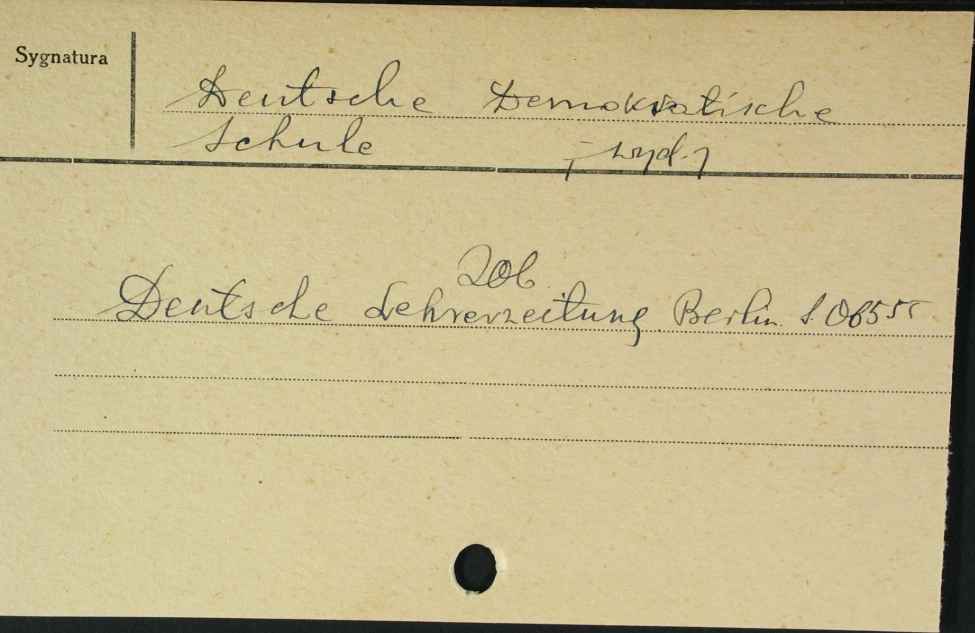 Sygnatura
Deutsche Demokratische
Schule
wyd.
Zob.
Deutsche Lehrerzeitung Berlin. S 06555